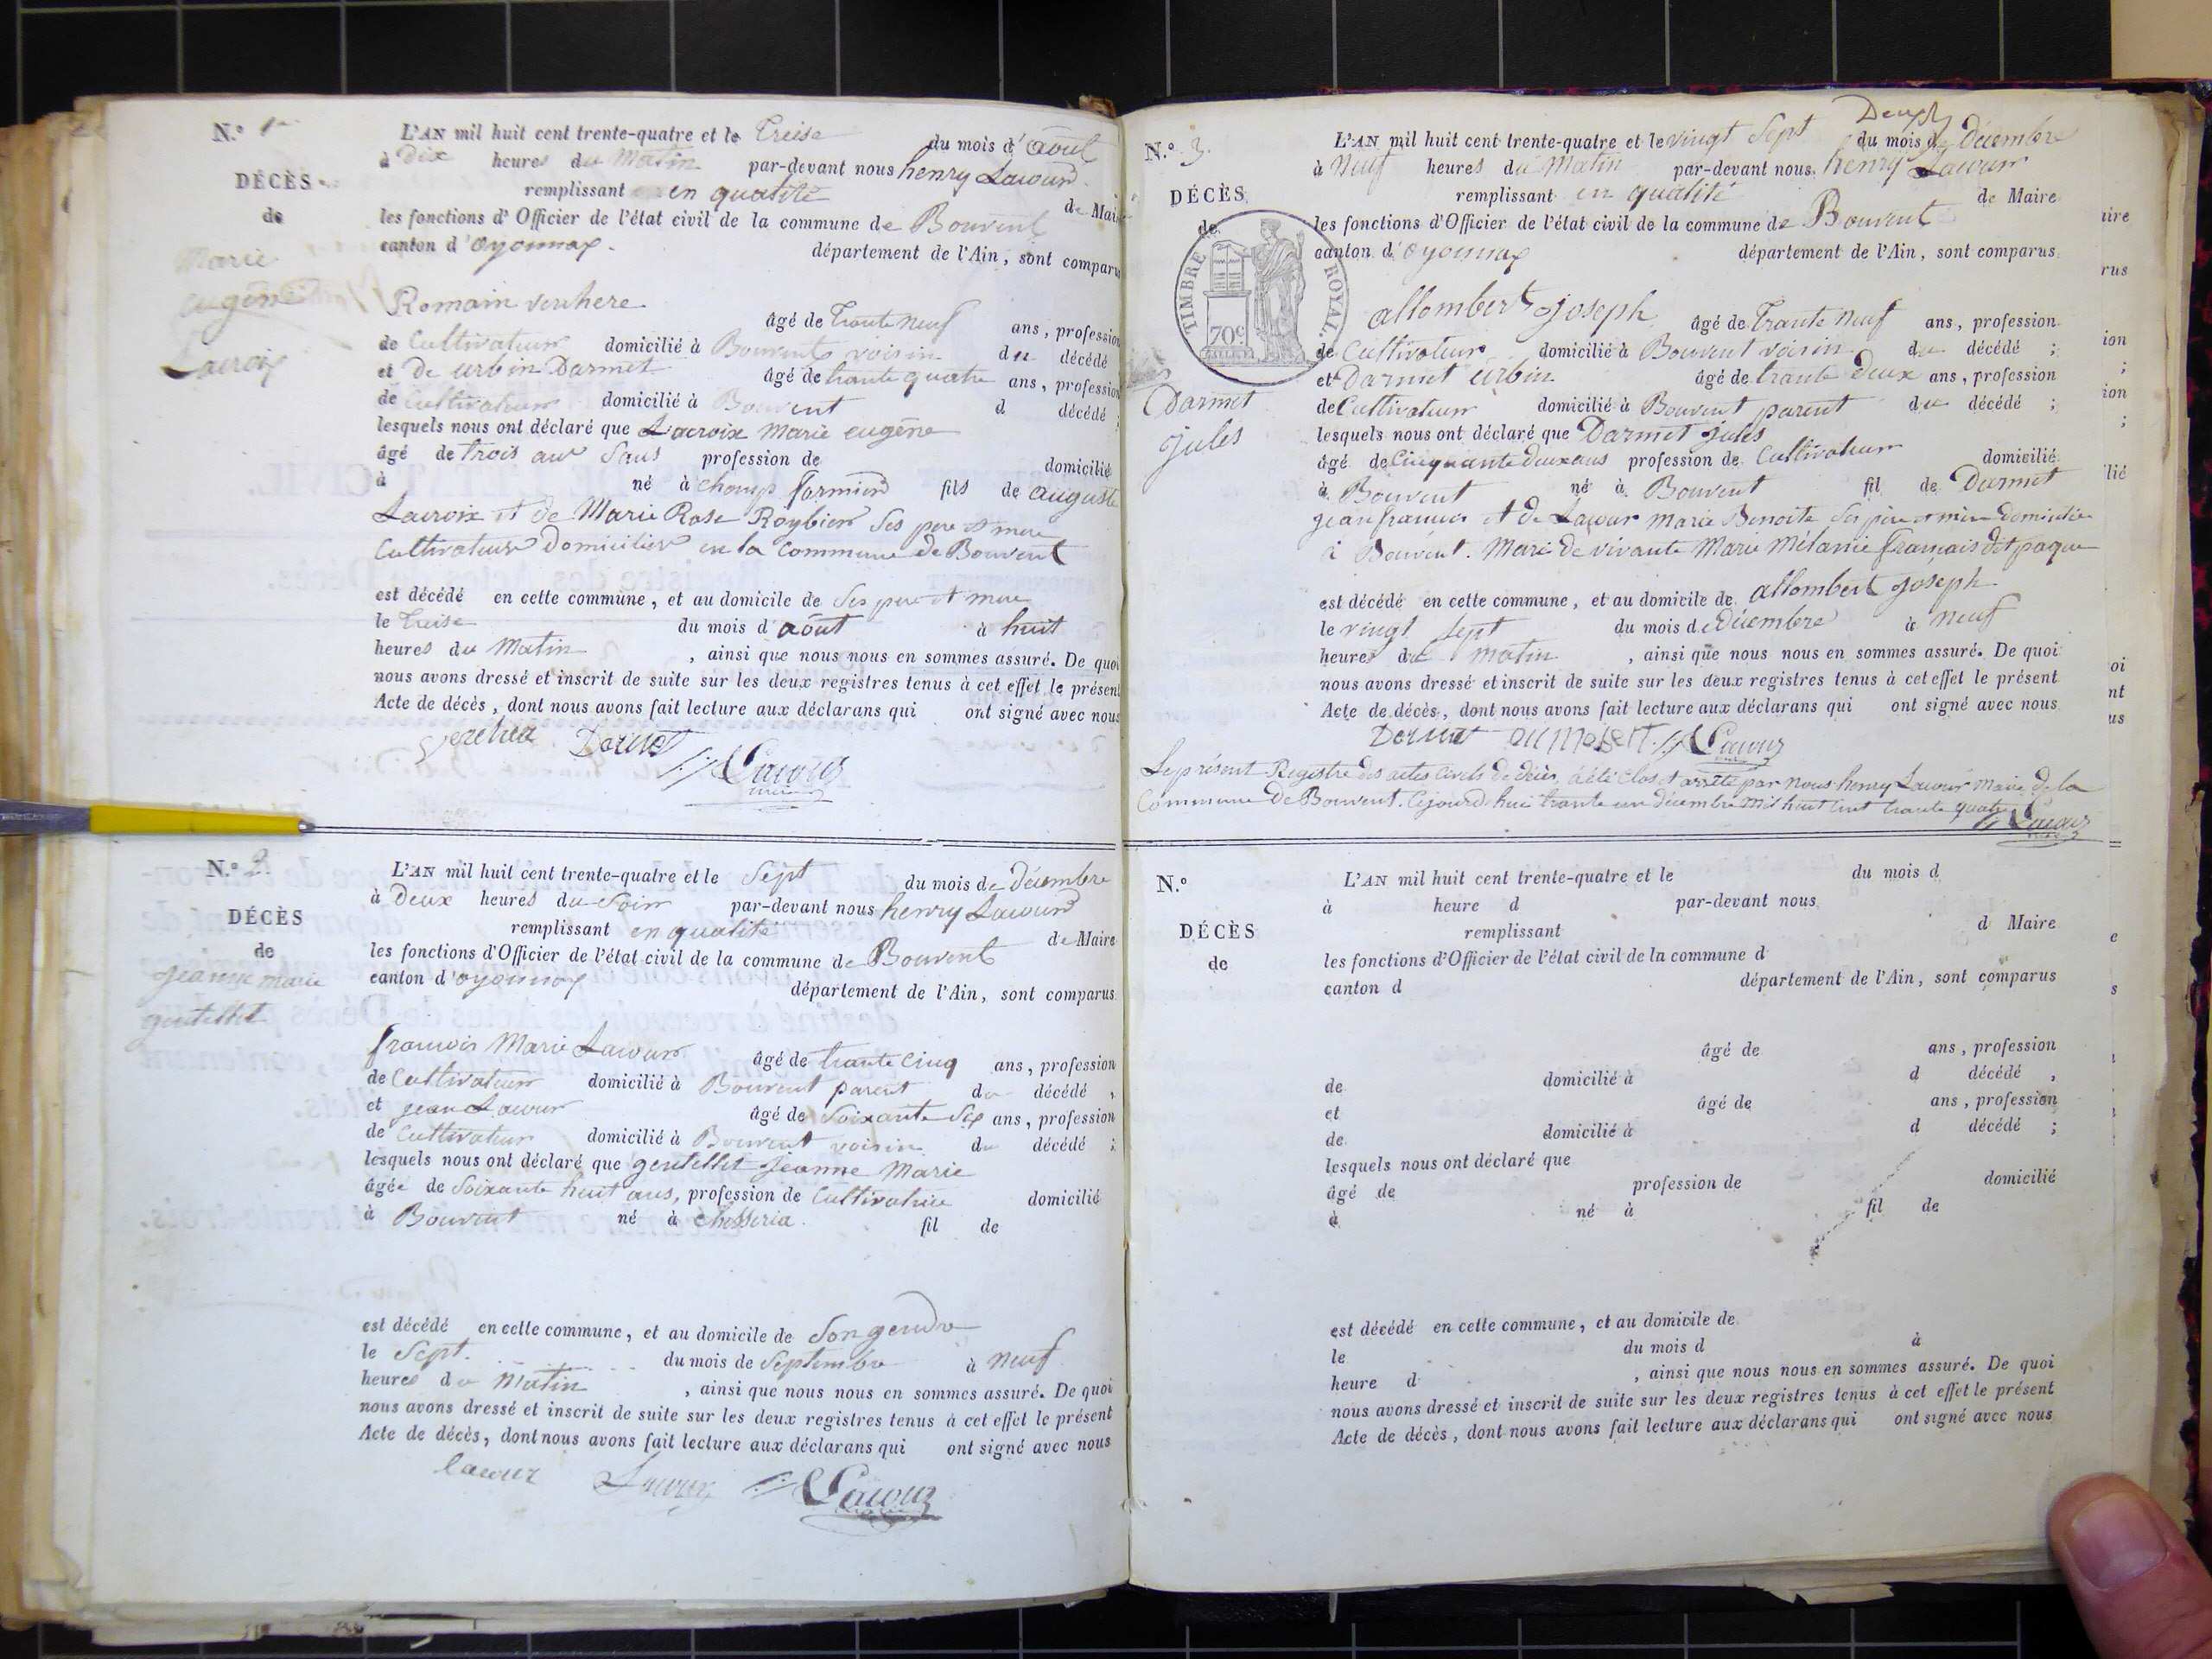 N.o 1er
DÉCÈS
de
Marie
eugène
Lacroix
L'AN mil huit cent trente-quatre et le treise du mois d'aout
à dix heures du matin par-devant nous henry Lacour
remplissant en qualité de Mai
les fonctions d'Officier de l'état civil de la commune de Bouvent
canton d'oyonnax. département de l'Ain, sont comparu
Romain verchere âgé de trante neuf ans, profession
de Cultivateur domicilié à Bouvent voisin du décédé
et De urbin Darmet âgé de trante quatre ans, profession
de Cultivateur domicilié à Bouvent d décédé ;
lesquels nous ont déclaré que Lacroix Marie eugène
âgé de trois ans Sans profession de domicilié
à né à champ formier fils de auguste
Lacroix et de Marie Rose Roybier Ses pere et mere
Cultivateur Domicilier en la Commune de Bouvent
est décédé en cette commune, et au domicile de Ses pere et mere
le treise du mois d'aout à huit
heures du Matin , ainsi que nous nous en sommes assuré. De quoi
nous avons dressé et inscrit de suite sur les deux registres tenus à cet effet le présent
Acte de décès, dont nous avons fait lecture aux déclarans qui ont signé avec nous
Darmet Lacour
N.o 2.
DÉCÈS
de
jeanne marie
gentellet
L'AN mil huit cent trente-quatre et le Sept du mois de décembre
à Deux heures du Soir par-devant nous henry Lacour
remplissant en qualité de Maire
les fonctions d'Officier de l'état civil de la commune de Bouvent
canton d'oyonnax département de l'Ain, sont comparus
francois Marie Lacour âgé de trante cinq ans, profession
de Cultivateur domicilié à Bouvent parent du décédé ,
et jean Lacour âgé de Soixante Six ans, profession
de Cultivateur domicilié à Bouvent voisin du décédé ;
lesquels nous ont déclaré que gentellet jeanne Marie
âgée de Soixante huit ans, profession de Cultivatrice domicilié
à Bouvent né à fil de
est décédé en cette commune, et au domicile de Son gendre
le Sept. du mois de Septembre à neuf
heures du Matin , ainsi que nous nous en sommes assuré. De quoi
nous avons dressé et inscrit de suite sur les deux registres tenus à cet effet le présent
Acte de décès, dont nous avons fait lecture aux déclarans qui ont signé avec nous
lacour Lacour Lacour
Deux
N.o 3.
DÉCÈS
de
TIMBRE ROYAL
70c
Darmet
jules
L'AN mil huit cent trente-quatre et le vingt Sept du mois de Décembre
à Neuf heures du Matin par-devant nous henry Lacour
remplissant en qualité de Maire
les fonctions d'Officier de l'état civil de la commune de Bouvent
canton d'oyonnax département de l'Ain, sont comparus
allombert joseph âgé de trante neuf ans, profession
de Cultivateur domicilié à Bouvent voisin du décédé ;
et Darmet urbin âgé de trante deux ans, profession
de Cultivateur domicilié à Bouvent parent du décédé ;
lesquels nous ont déclaré que Darmet jules
âgé de Cinquante deux ans profession de Cultivateur domicilié
à Bouvent né à Bouvent fil de Darmet
jean francois et de Lacour Marie Benoite Ses père et mère domicilie
à Bouvent. Mari de vivante Marie Mélanie français dit paque
est décédé en cette commune, et au domicile de allombert joseph
le vingt Sept du mois de Décembre à neuf
heures du matin , ainsi que nous nous en sommes assuré. De quoi
nous avons dressé et inscrit de suite sur les deux registres tenus à cet effet le présent
Acte de décès, dont nous avons fait lecture aux déclarans qui ont signé avec nous
Darmet Lacour
Le présent Registre des actes Civils de décès, à été clos et arrêté par nous henry Lacour Maire de la
Commune De Bouvent. Cejourd'hui trante un décembre mil huit cent trante quatre Lacour
N.o
DÉCÈS
de
L'AN mil huit cent trente-quatre et le du mois d
à heure d par-devant nous
remplissant d Maire
les fonctions d'Officier de l'état civil de la commune d
canton d département de l'Ain, sont comparus
âgé de ans, profession
de domicilié à d décédé ,
et âgé de ans, profession
de domicilié à d décédé ;
lesquels nous ont déclaré que
âgé de profession de domicilié
à né à fil de
est décédé en cette commune, et au domicile de
le du mois d à
heure d , ainsi que nous nous en sommes assuré. De quoi
nous avons dressé et inscrit de suite sur les deux registres tenus à cet effet le présent
Acte de décès, dont nous avons fait lecture aux déclarans qui ont signé avec nous